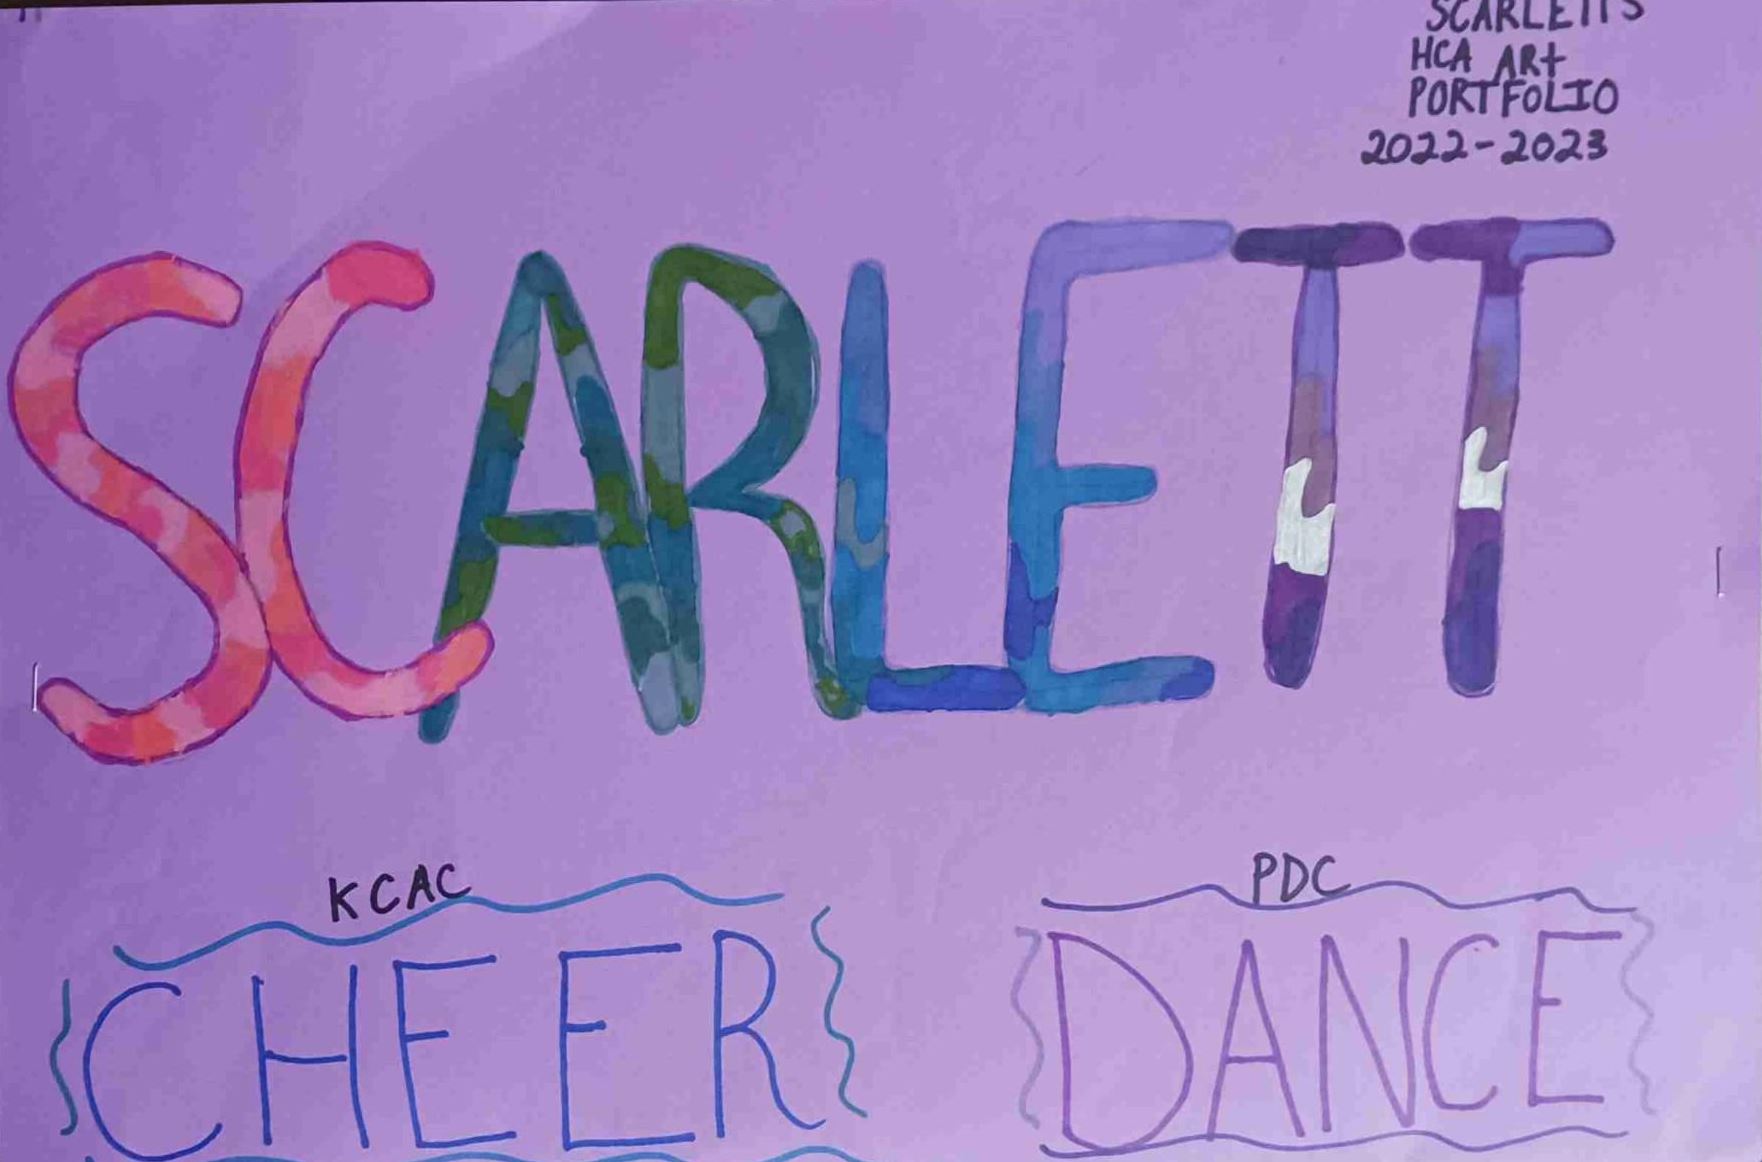 SCARLETTS
HCA ARt
PORTFOLIO
2022-2023
SCARLETT
KCAC
PDC
CHEER
DANCE